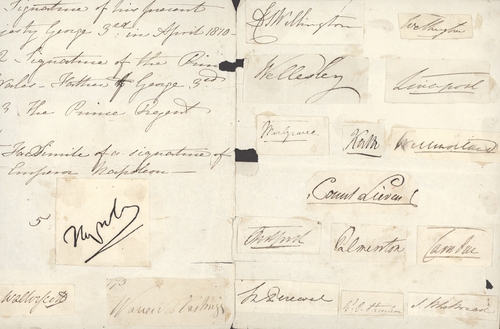 Signature of his present
esty George 3rd in April 1810
2 Signature of the Prin
Wales - Father to George 3rd
3 The Prince Regent
Facsimile of a signature of
Emperor Napoleon
5
Walter Scott
Warren Hastings
D. Wellington
Wellington
Wellesley
Liverpool
Mulgrave
Keith
Westmorland
Count Lieven
Bedford
Palmerston
Camden